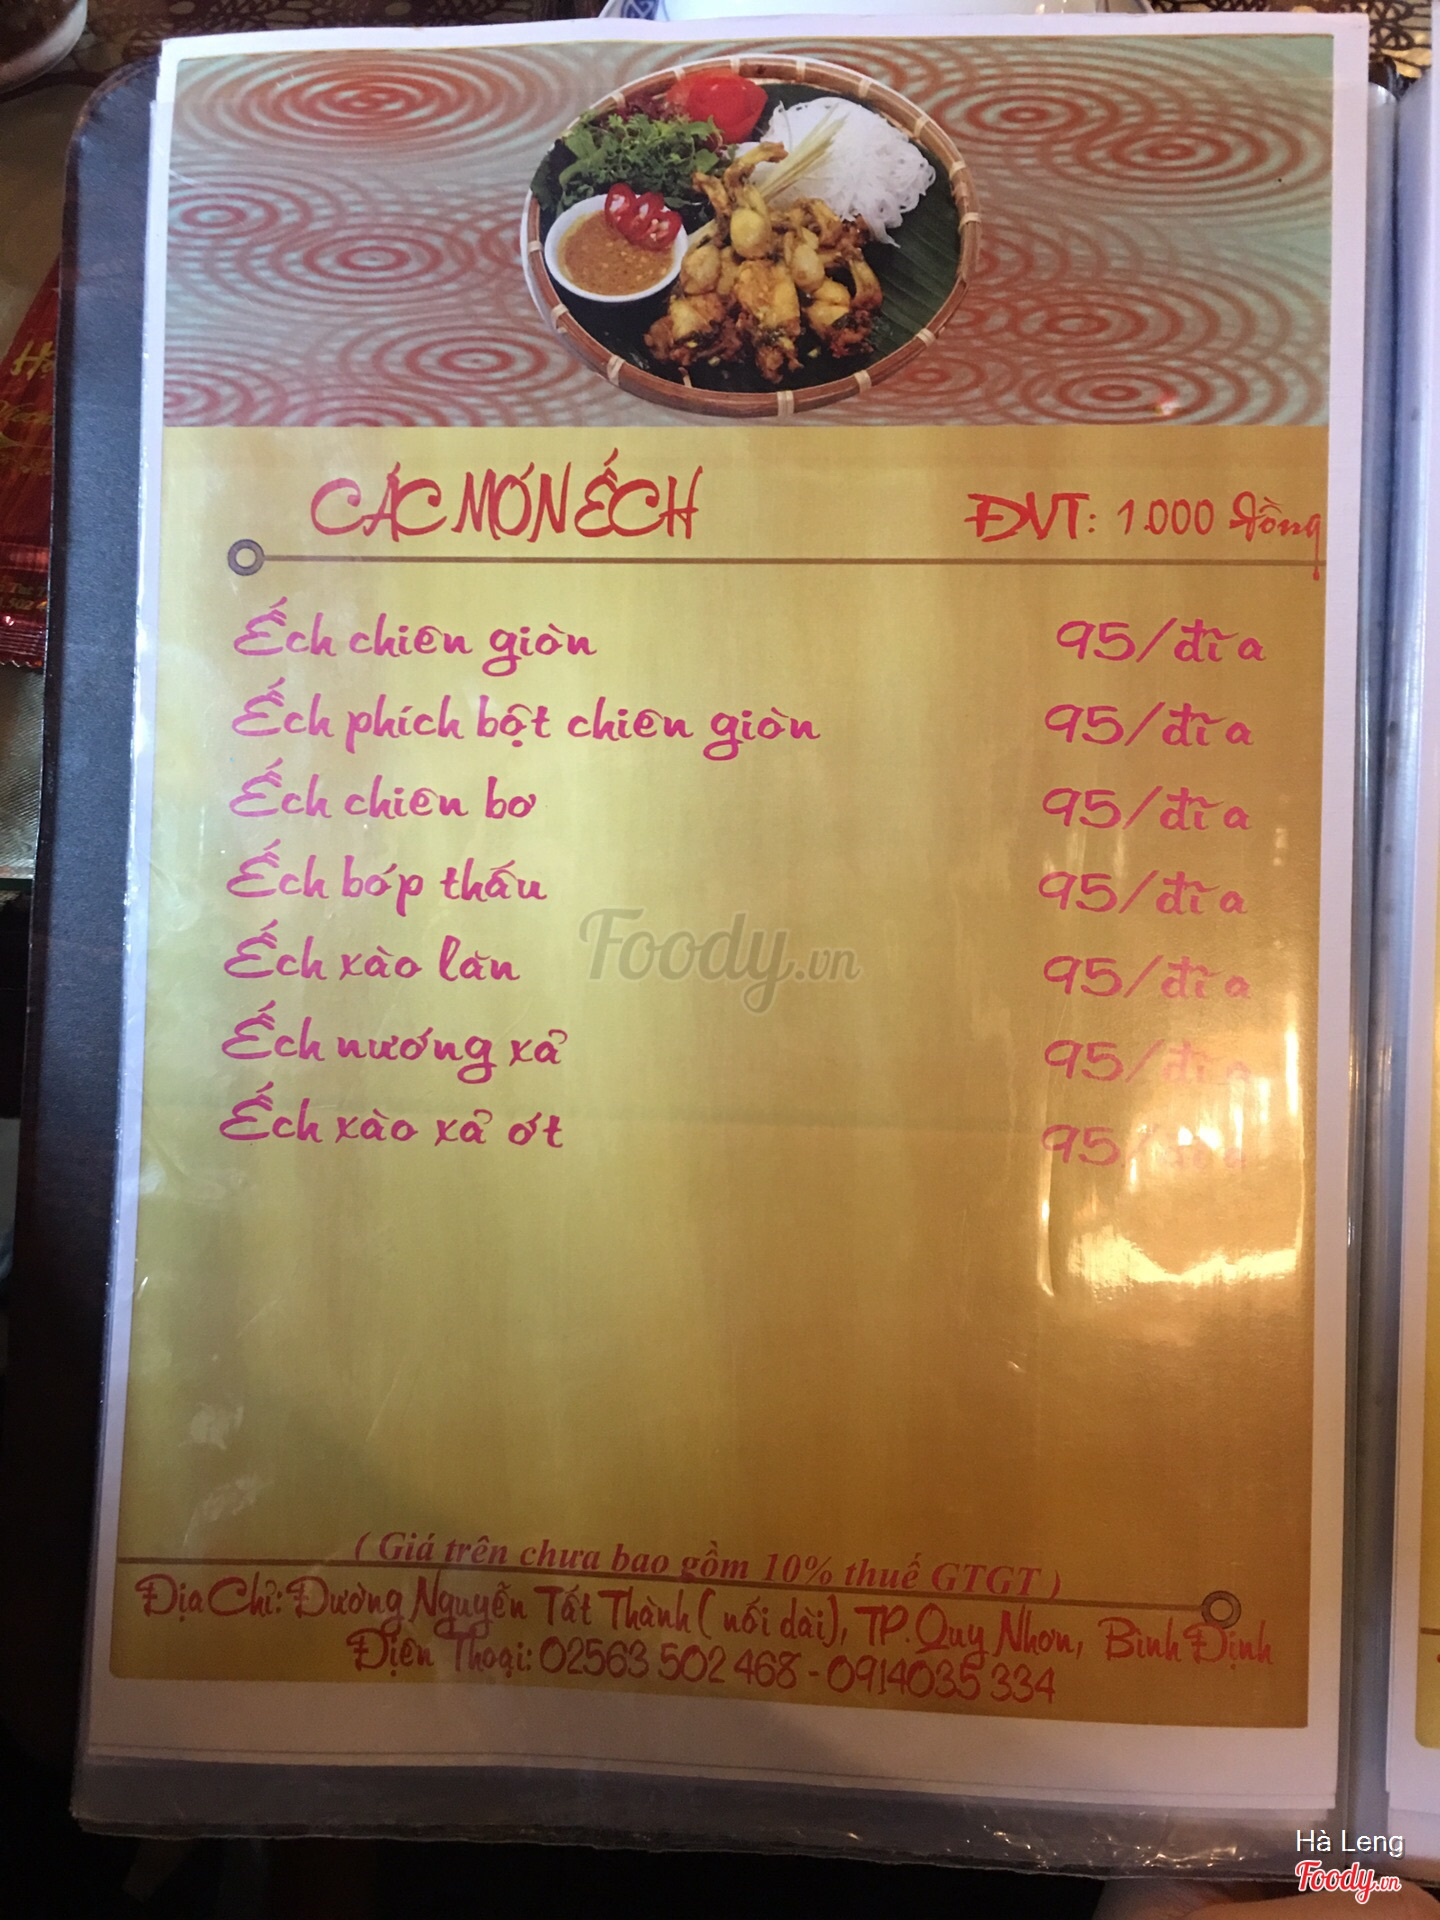 CÁC MÓN ẾCH
ĐVT: 1.000 đồng
Ếch chiên giòn 95/đĩa
Ếch phích bột chiên giòn 95/đĩa
Ếch chiên bơ 95/đĩa
Ếch bóp thấu 95/đĩa
Ếch xào lăn 95/đĩa
Ếch nướng xả 95/đĩa
Ếch xào xả ớt 95/đĩa
Foody.vn
( Giá trên chưa bao gồm 10% thuế GTGT )
Địa Chỉ: Đường Nguyễn Tất Thành ( nối dài), TP.Quy Nhơn, Bình Định
Điện Thoại: 02563 502 468 - 0914035 334
Hà Leng
Foody.vn